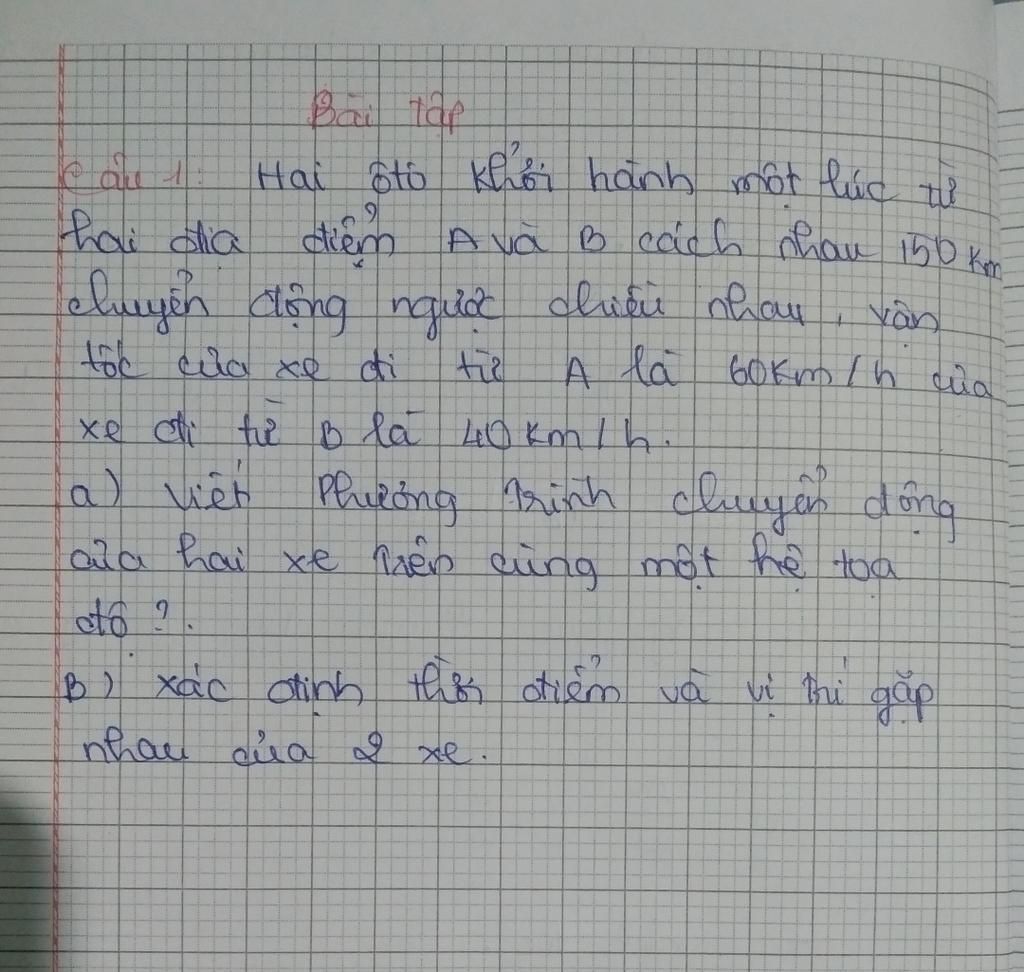 Bài tập
Câu 1: Hai ôtô khởi hành một lúc từ
hai địa điểm A và B cách nhau 150 Km
chuyển động ngược chiều nhau, vận
tốc của xe đi từ A là 60Km/h của
xe đi từ B là 40 Km/h.
a) Viết Phương trình chuyển động
của hai xe trên cùng một hệ tọa
độ?.
B) xác định thời điểm và vị trí gặp
nhau của 2 xe.